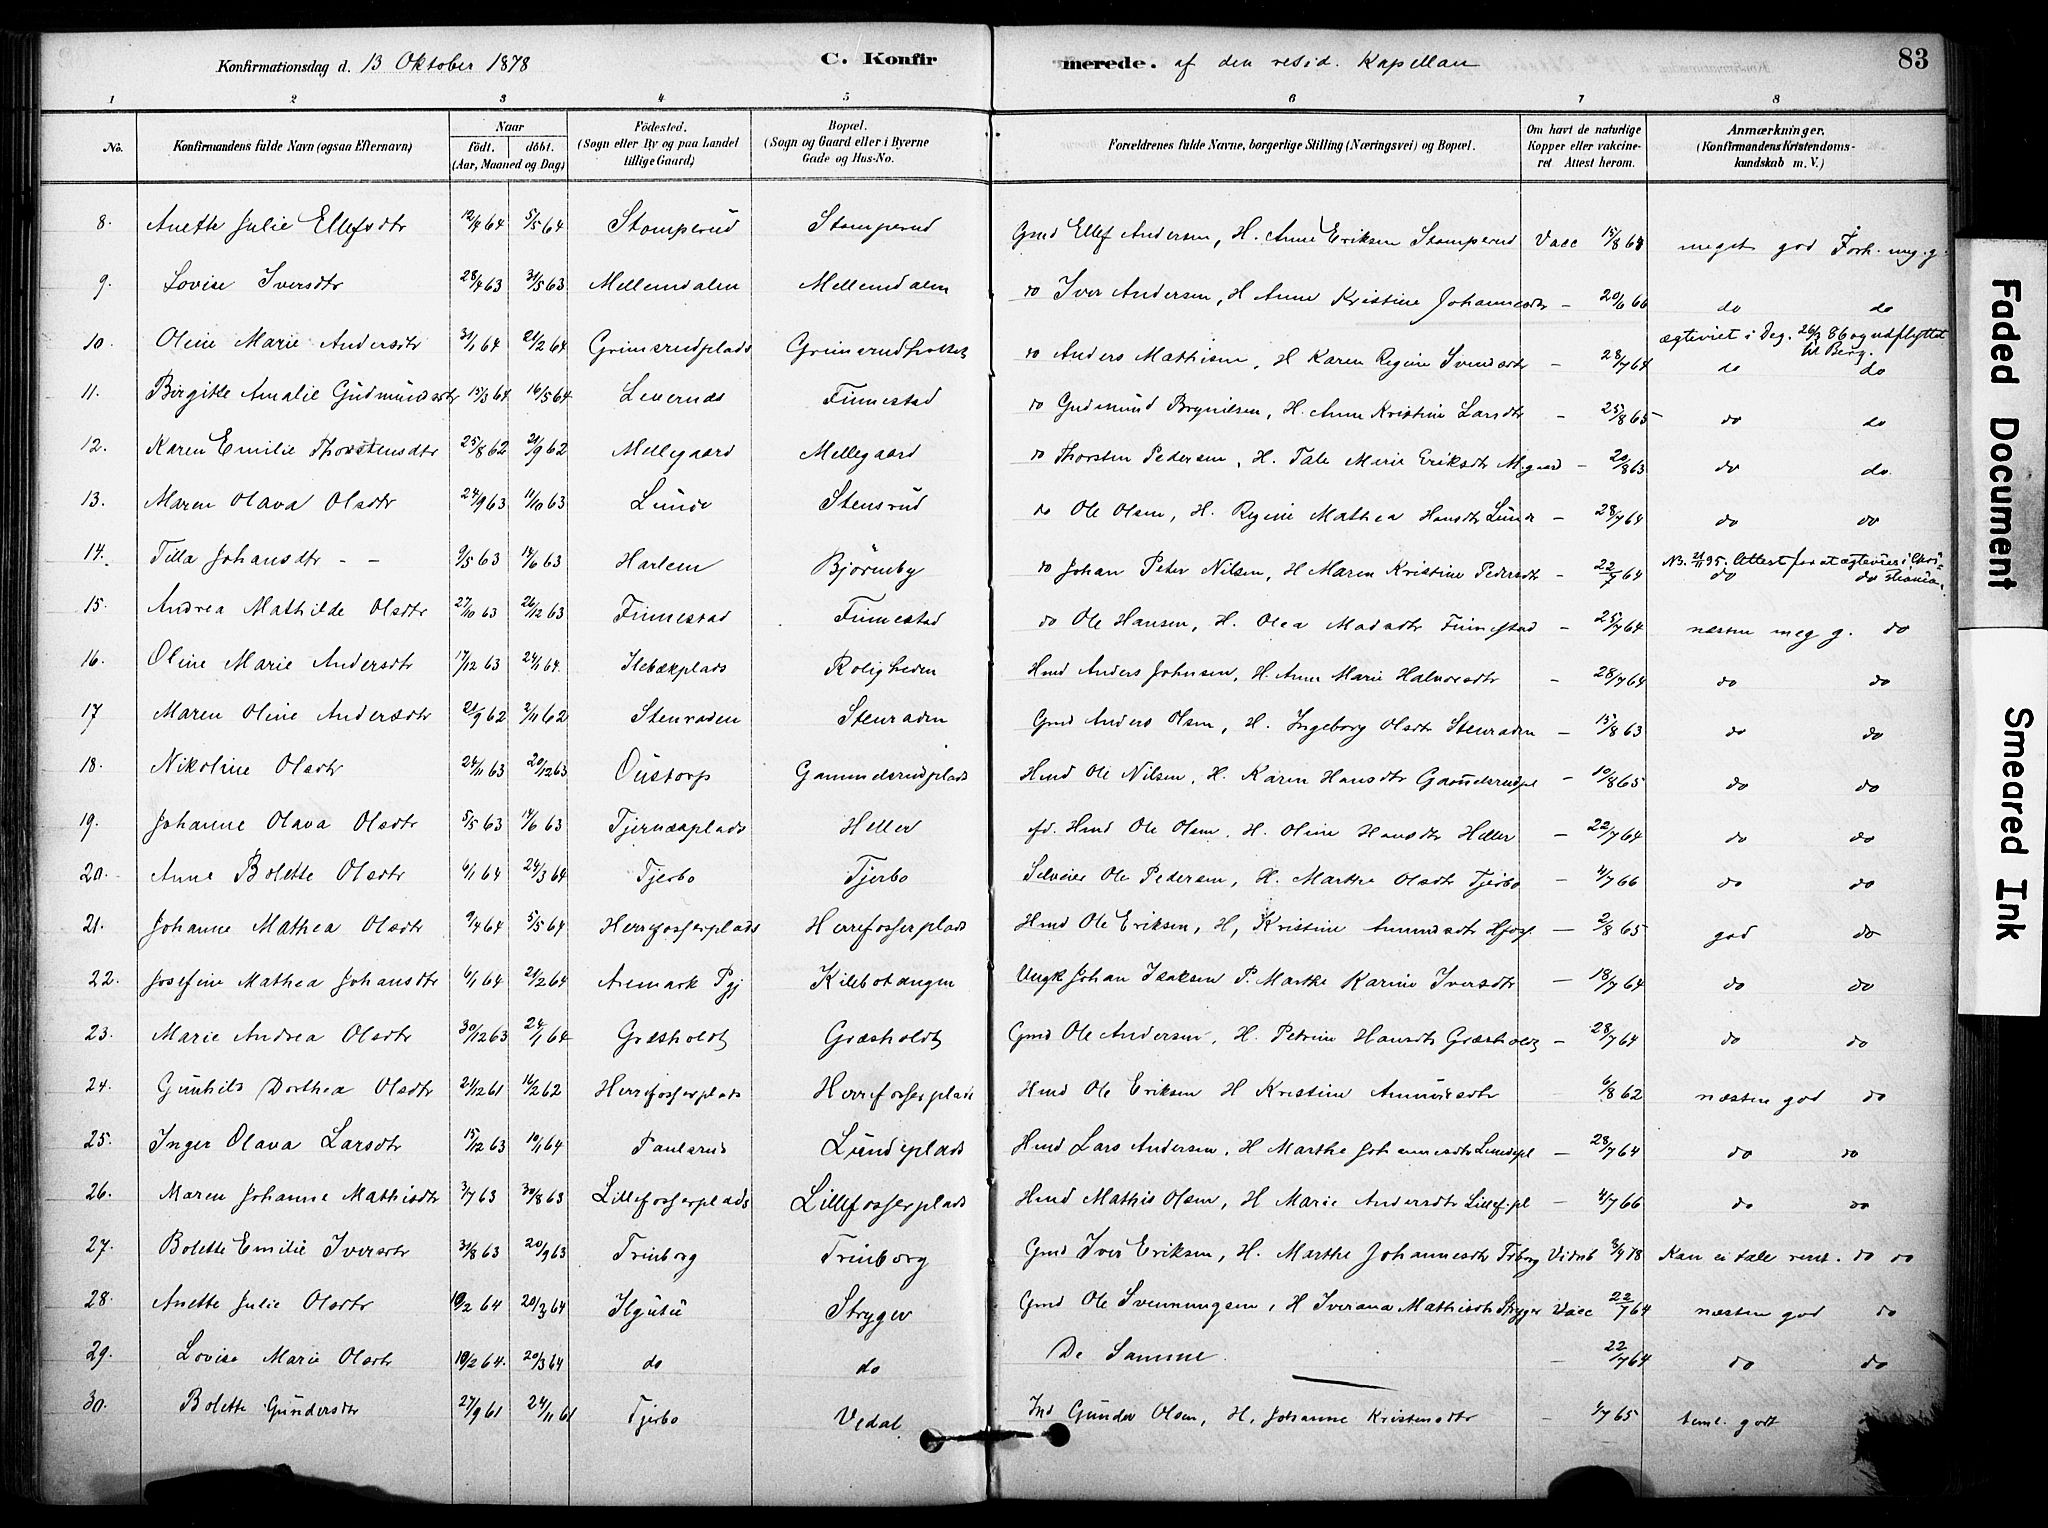 Konfirmationsdag d. 13 Oktober 1878 C. Konfir merede. af den resid. Kapellan 83
1 2 3 4 5 6 7 8
No. Konfirmandens fulde Navn (ogsaa Efternavn) Naar født. døbt. (Aar, Maaned og Dag) Födested. (Sogn eller By og paa Landet tillige Gaard) Bopæl. (Sogn og Gaard eller i Byerne Gade og Hus-No. Forældrenes fulde Navne, borgerlige Stilling (Næringsvei) og Bopæl. Om havt de naturlige Kopper eller vakcineret Attest herom. Anmærkninger. (Konfirmandens Kristendomskundskab m. V.)
8. Anette Julie Ellefsdtr 12/4 64 5/5 64 Stomperud Stomperud Gmd Ellef Andersen, H. Anne Eriksen Stomperud Vacc 15/8 64 meget god Forh. meg. g.
9. Lovise Iversdtr 28/4 63 31/5 63 Mellemdalen Mellemdalen do Iver Andersen, H Anne Kristine Johannesdtr - 20/6 66 do do
10. Oline Marie Andersdtr 31/1 64 21/2 64 Grimsrudplads Grimsrudholtet do Anders Mathisen, H Karen Regine Svendsdtr - 28/7 64 ægteviet i Deg. 26/3 86 og udflyttet til Berg. do do
11. Birgitte Amalie Gudmundsdtr 15/3 64 16/5 64 Levernæs Finnestad do Gudmund Brynilsen, H. Anne Kristine Larsdtr - 25/8 65 do do
12. Karen Emilie Thorstensdtr 25/8 62 21/9 62 Mellegaard Mellegaard do Thorsten Pedersen, H. Tale Marie Eriksdtr M.gaard - 20/8 63 do do.
13. Maren Olava Olsdtr 24/9 63 11/10 63 Lunde Stensrud do Ole Olsen, H. Regine Mathea Hansdtr Lunde - 28/7 64 do do
14. Tilla Johansdtr - - 9/5 63 14/6 63 Harlem Björneby do Johan Peter Nilsen, H Maren Kristine Pedersdtr - 22/7 64 N3. 21/11 95. Attest for at ægtevies i Christiania. do do
15. Andrea Mathilde Olsdtr 27/10 63 26/12 63 Finnestad Finnestad do Ole Hansen, H. Olea Madsdtr Finnestad - 25/7 64 næsten meg g. do
16. Oline Marie Andersdtr 17/12 63 24/1 64. Ilebækplads Roligheden Hmd Anders Johnsen, H. Anne Marie Halvorsdtr - 28/7 64 do do
17 Maren Oline Andersdtr 21/9 62 2/11 62 Stenraden Stenraden Gmd Anders Olsen, H. Ingeborg Olsdtr Stenraden - 15/8 63 do do
18. Nikoline Olsdtr 24/11 63 20/12 63 Oustorp Gammelsrudplads Hmd Ole Nilsen, H. Karen Hansdtr Gammelsrudpl - 10/8 65 do do
19. Johanne Olava Olsdtr 5/5 63 14/6 63 Tjernæsplads Heller fd. Hmd Ole Olsen, H. Oline Hansdtr Heller - 22/7 64 do do
20. Anne Bolette Olsdtr 6/1 64 24/3 64 Tjerbo Tjerbo Selveier Ole Pedersen, H. Marthe Olsdtr Tjerbo - 4/7 66 do do
21. Johanne Mathea Olsdtr 9/4 64 5/5 64 Herrefosserplads Herrefosserplads Hmd Ole Eriksen, H, Kristine Amundsdtr Hfosf. - 2/8 65 god do
22. Josefine Mathea Johansdtr 6/1 64 21/2 64 Aremark Pgj Kilebotangen Ungk Johan Isaksen P. Marthe Karine Iversdtr - 18/7 64 do do
23. Marie Andrea Olsdtr 30/12 63 24/1 64 Græsholdt Græsholdt Gmd Ole Andersen, H. Petrine Hansdtr Græsholdt - 28/7 64 do do
24. Gunhild Dorthea Olsdtr 21/12 61 16/2 62 Herrefosserplads Herrefosserplads Hmd Ole Eriksen H Kristine Amundsdtr 6/8 62 næsten god do
25. Inger Olava Larsdtr 15/12 63 10/1 64 Paulsrud Lundeplads Hmd Lars Andersen, H Marthe Johannesdtr Lundepl - 28/7 64 do do
26. Maren Johanne Mathisdtr 3/7 63 30/8 63 Lillefosserplads Lillefosserplads Hmd Mathis Olsen, H Marie Andersdtr Lillef.pl - 4/7 66 do do
27. Bolette Emilie Iversdtr 31/8 63 20/9 63 Trinborg Trinborg Gmd Iver Eriksen, H. Marthe Johannesdtr Trborg Vidnb 3/9 78 Kan ei tale rent. do do
28. Anette Julie Olsdtr 10/2 64 20/3 64 Ilgutu Stryger Gmd Ole Svenningsen, H Iverana Mathisdtr Stryger Vacc 22/7 64 næsten god do
29. Lovise Marie Olsdtr 10/2 64. 20/3 64 do do De Samme. - 22/7 64 do do
30. Bolette Gundersdtr 27/9 61 24/11 61 Tjerbo Vedal Ind Gunder Olsen, H, Johanne Kristensdtr - 4/7 65 teml. godt do
Faded Document
Smeared Ink